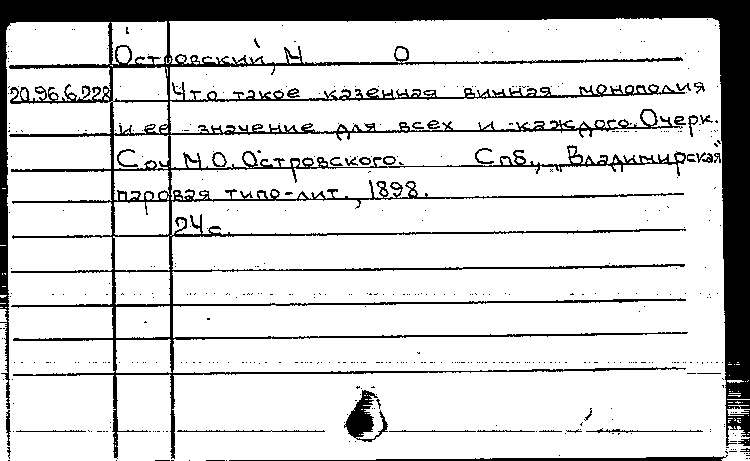 Островский, М О
20.96.6.228. Что такое казенная винная монополия
и ее значение для всех и каждого. Очерк.
Соч М.О. Островского. Спб., "Владимирская"
паровая типо-лит., 1898.
24с.